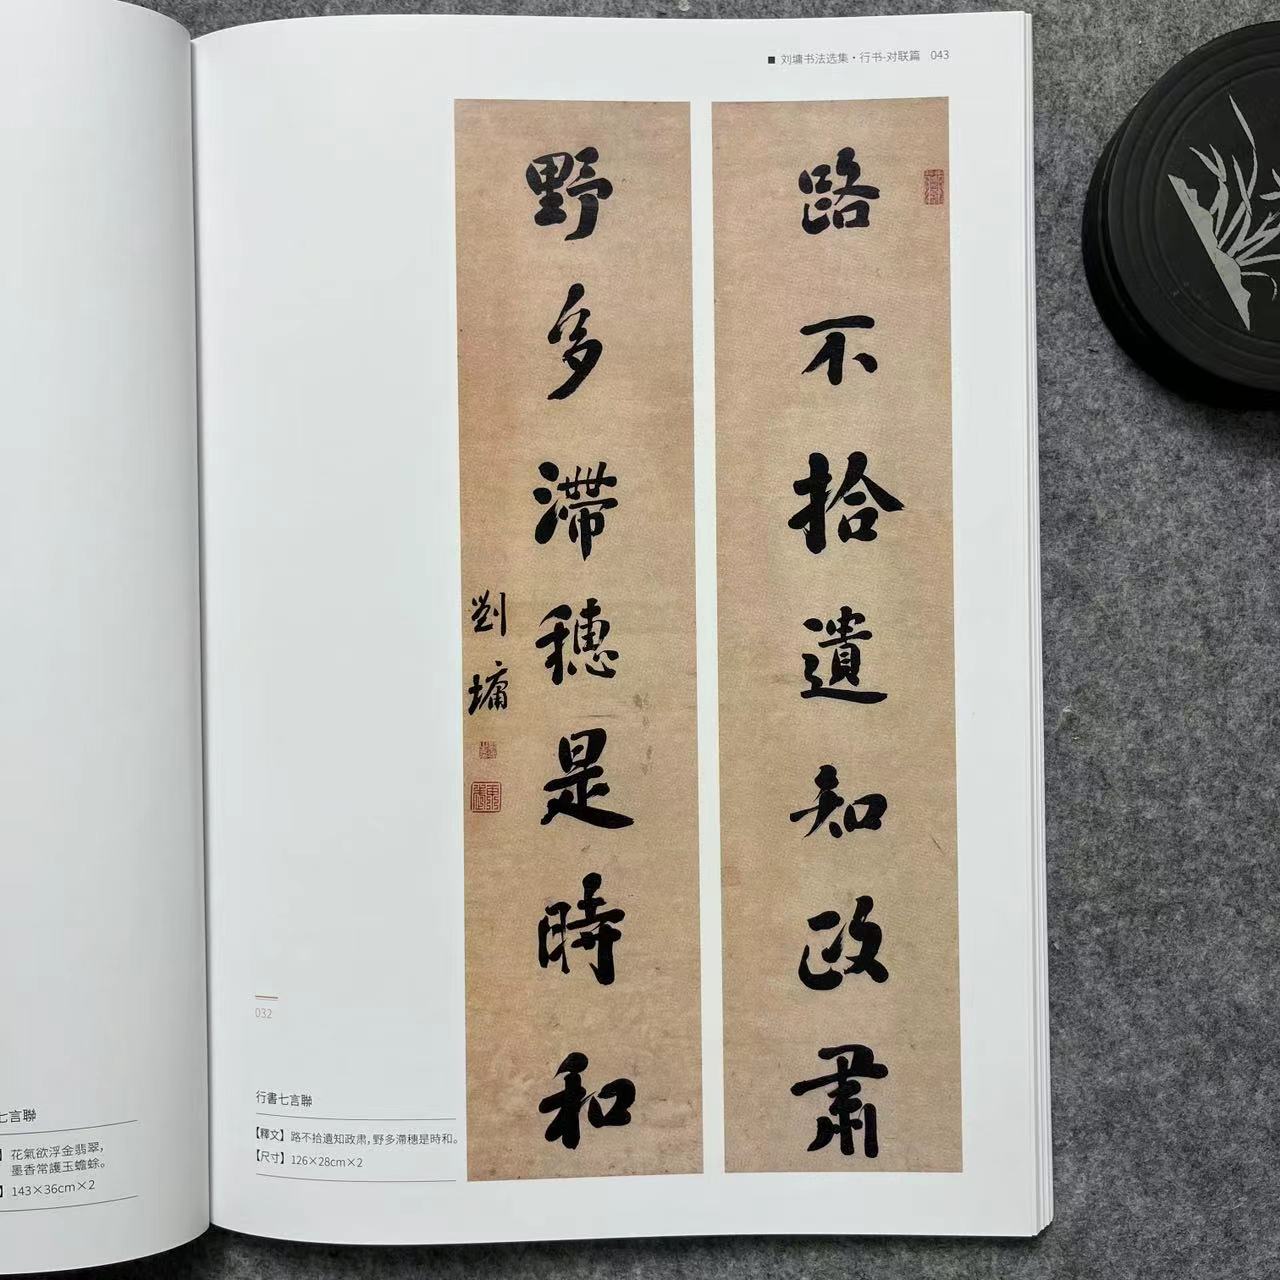 ■ 刘墉书法选集·行书-对联篇 043
路不拾遺知政肅
野多滯穗是時和
劉墉
032
行書七言聯
【釋文】路不拾遺知政肅,野多滯穗是時和。
【尺寸】126×28cm×2
七言聯
】花氣欲浮金翡翠,
墨香常護玉蟾蜍。
】143×36cm×2